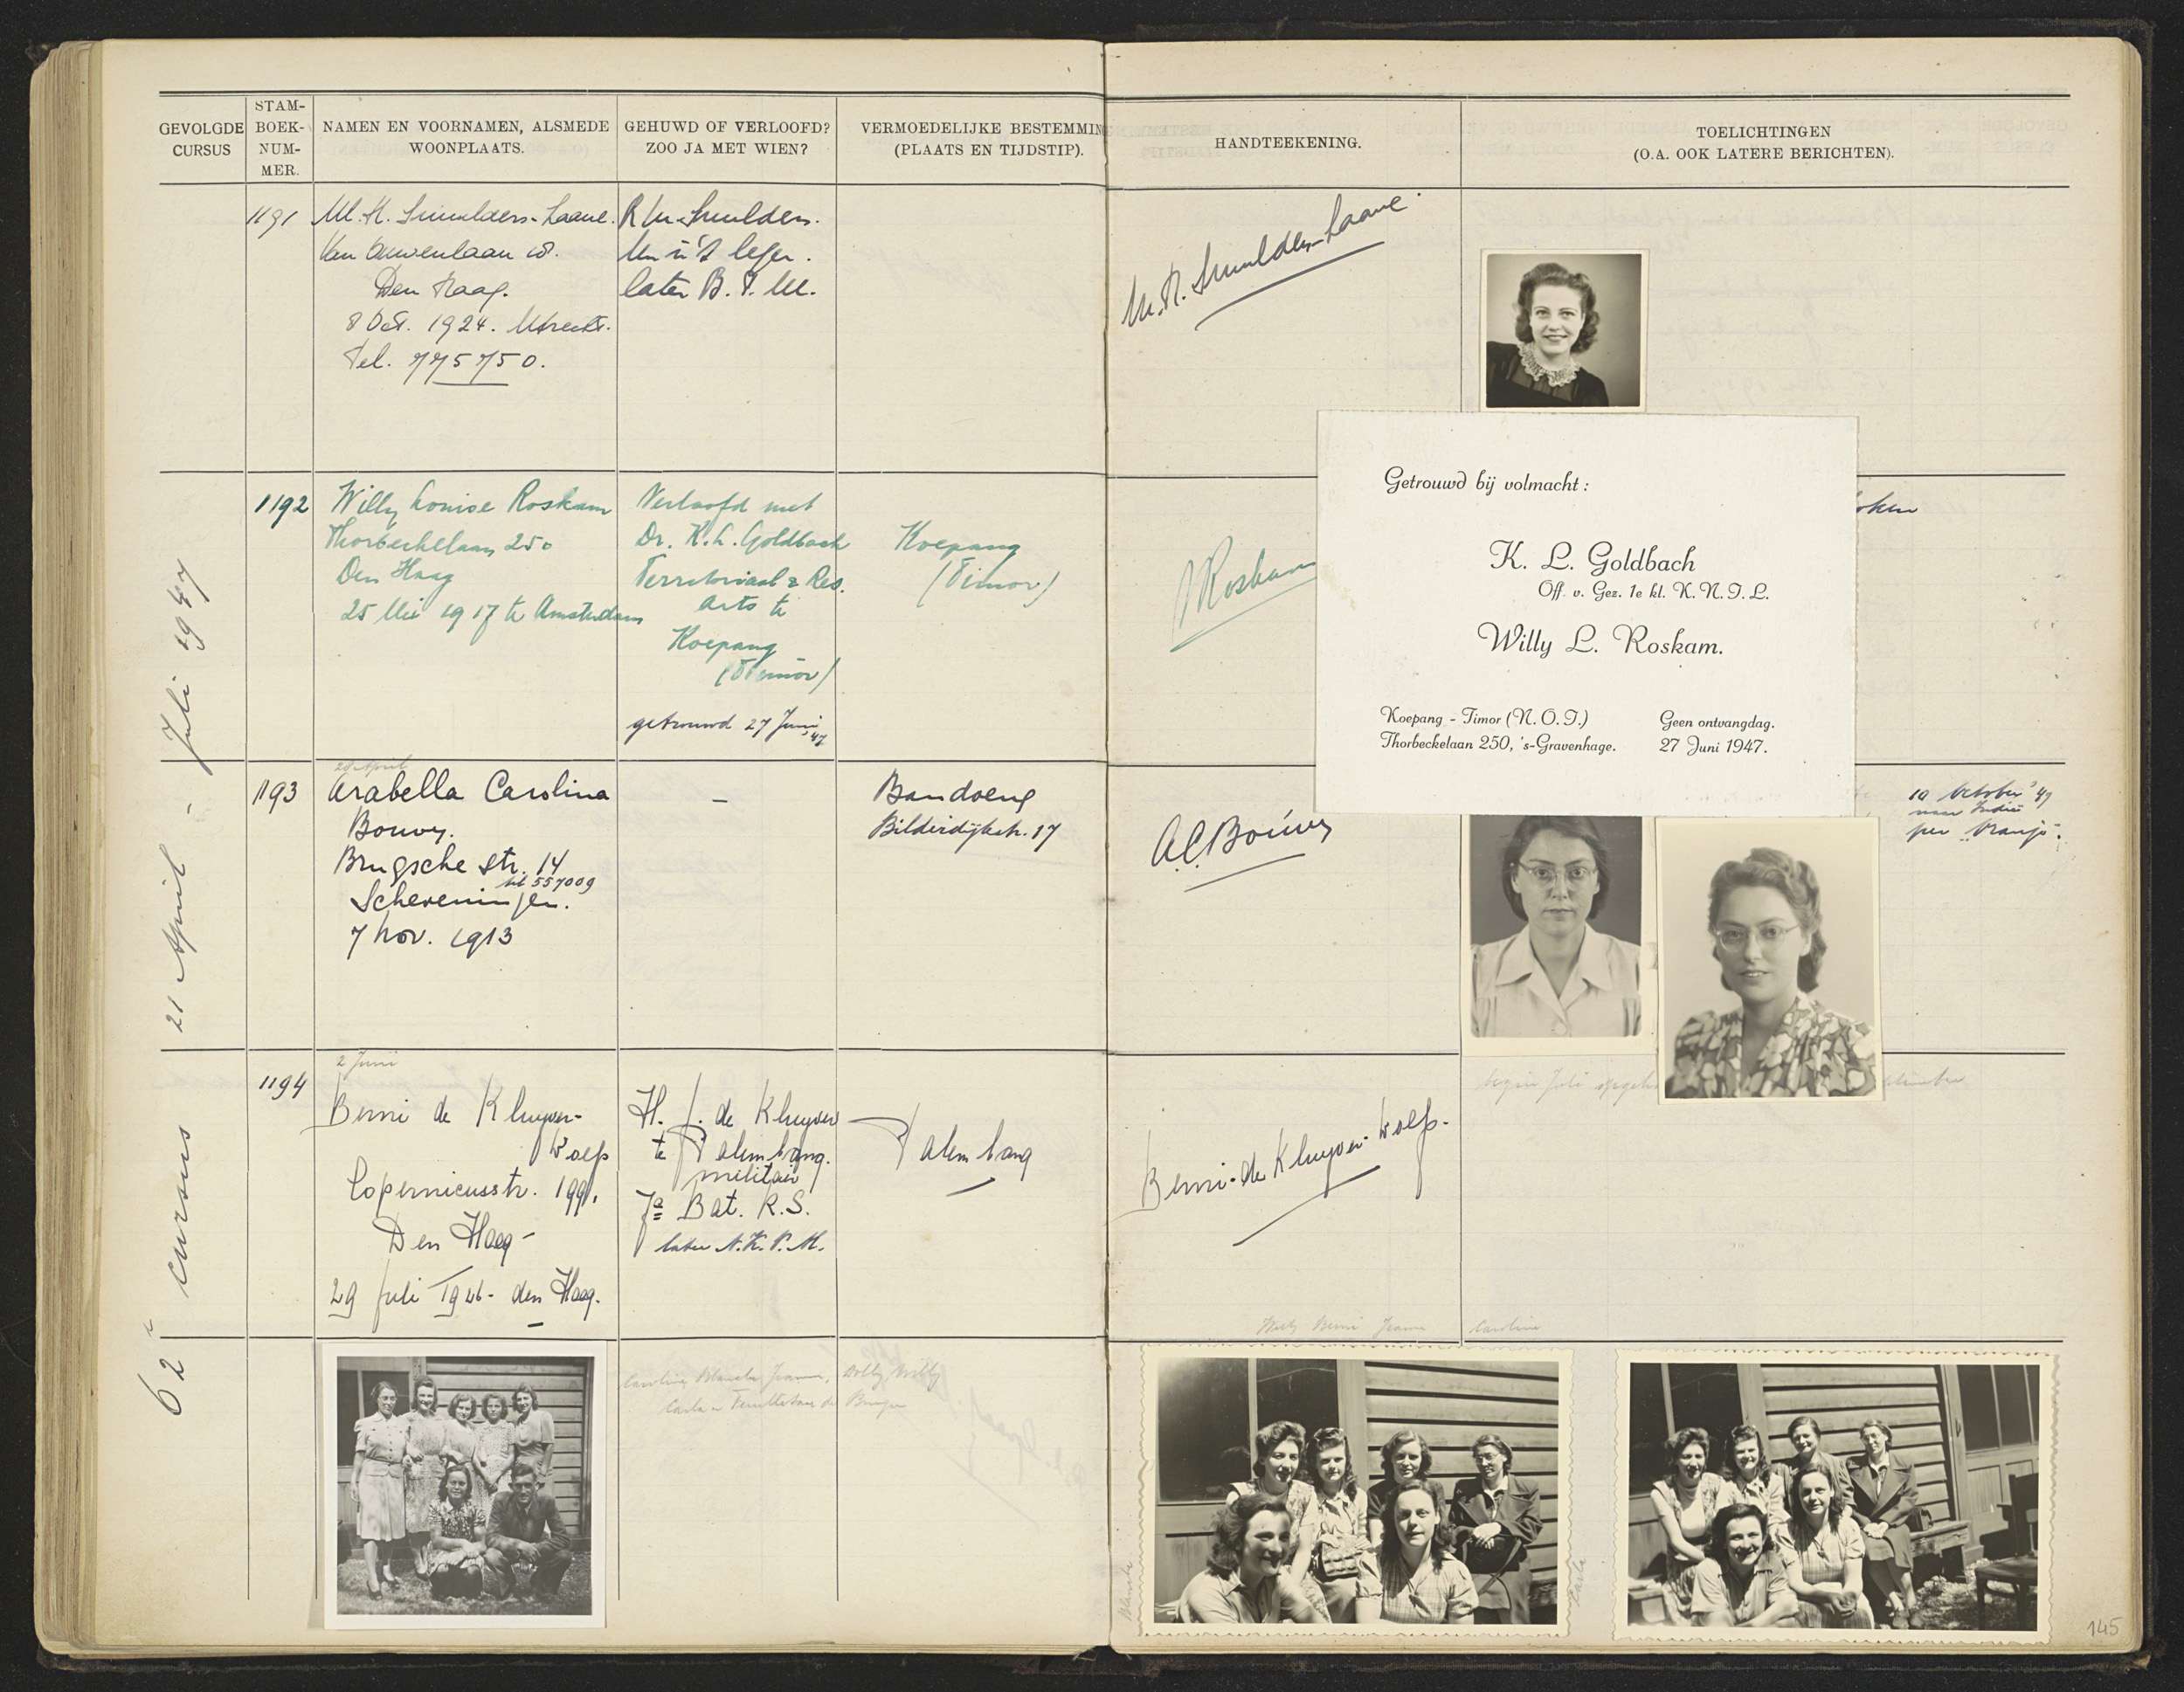 GEVOLGDE
CURSUS
STAM-
BOEK-
NUM-
MER.
NAMEN EN VOORNAMEN, ALSMEDE
WOONPLAATS.
GEHUWD OF VERLOOFD?
ZOO JA MET WIEN?
VERMOEDELIJKE BESTEMMIN
(PLAATS EN TIJDSTIP).
HANDTEEKENING.
TOELICHTINGEN
(O.A. OOK LATERE BERICHTEN).
62e cursus 21 April - Juli 1947
1191
M. H. Smulders-Laane.
Van 18.
Den Haag.
8 Oct. 1924. Utrecht.
Tel. 775750.
R Smulders.
later B. P. M.
Smulders-Laane.
1192
Willy Louise Roskam
Thorbeckelaan 250
Den Haag
25 Mei 1917 te Amsterdam
Verloofd met
Dr. K. L. Goldbach
Territoriaal & Res.
arts te
Koepang
(Timor)
getrouwd 27 Juni '47
Koepang
(Timor)
Roskam
Getrouwd bij volmacht:
K. L. Goldbach
Off. v. Gez. 1e kl. K. N. I. L.
Willy L. Roskam.
Koepang - Timor (N. O. I.)
Thorbeckelaan 250, 's-Gravenhage.
Geen ontvangdag.
27 Juni 1947.
1193
Arabella Carolina
Bouvy.
Brugsche str. 14
tel 557009
Scheveningen.
7 Nov. 1913
-
Bandoeng
Bilderdijkstr. 17
A.C. Bouvy
10 October '47
naar Indië
per "Oranje".
1194
2 Juni
Benni de Kluyver-
Wolff
Copernicusstr. 199.
Den Haag -
29 Juli 1926 - den Haag.
H. J. de Kluyver
te Palembang.
militair
7e Bat. R.S.
later N.K.P.M.
Palembang
Benni-de Kluyver-Wolff.
begin Juli
Willy Benni Jeanne Caroline
Caroline, Blanche, Jeanne, Dolly Willy
Carla
Blanche
Carla
145